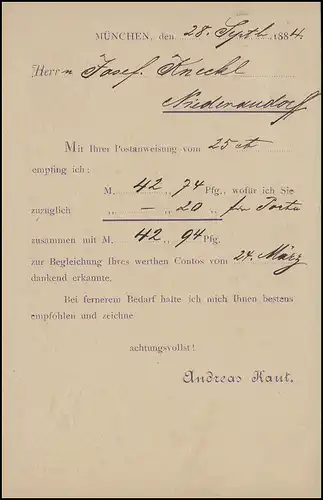 MÜNCHEN, den 28. Sept. 1884.
Herrn Josef Kneckl
Niederaudorf
Mit Ihrer Postanweisung vom 25 ct
empfing ich:
M. 42 „ 74 Pfg., wofür ich Sie
zuzüglich „ — „ 20 „ für Porto
zusammen mit M. 42 „ 94 Pfg.
zur Begleichung Ihres werthen Contos vom 24. März
dankend erkannte.
Bei fernerem Bedarf halte ich mich Ihnen bestens
empfohlen und zeichne
achtungsvollst!
Andreas Kaut.